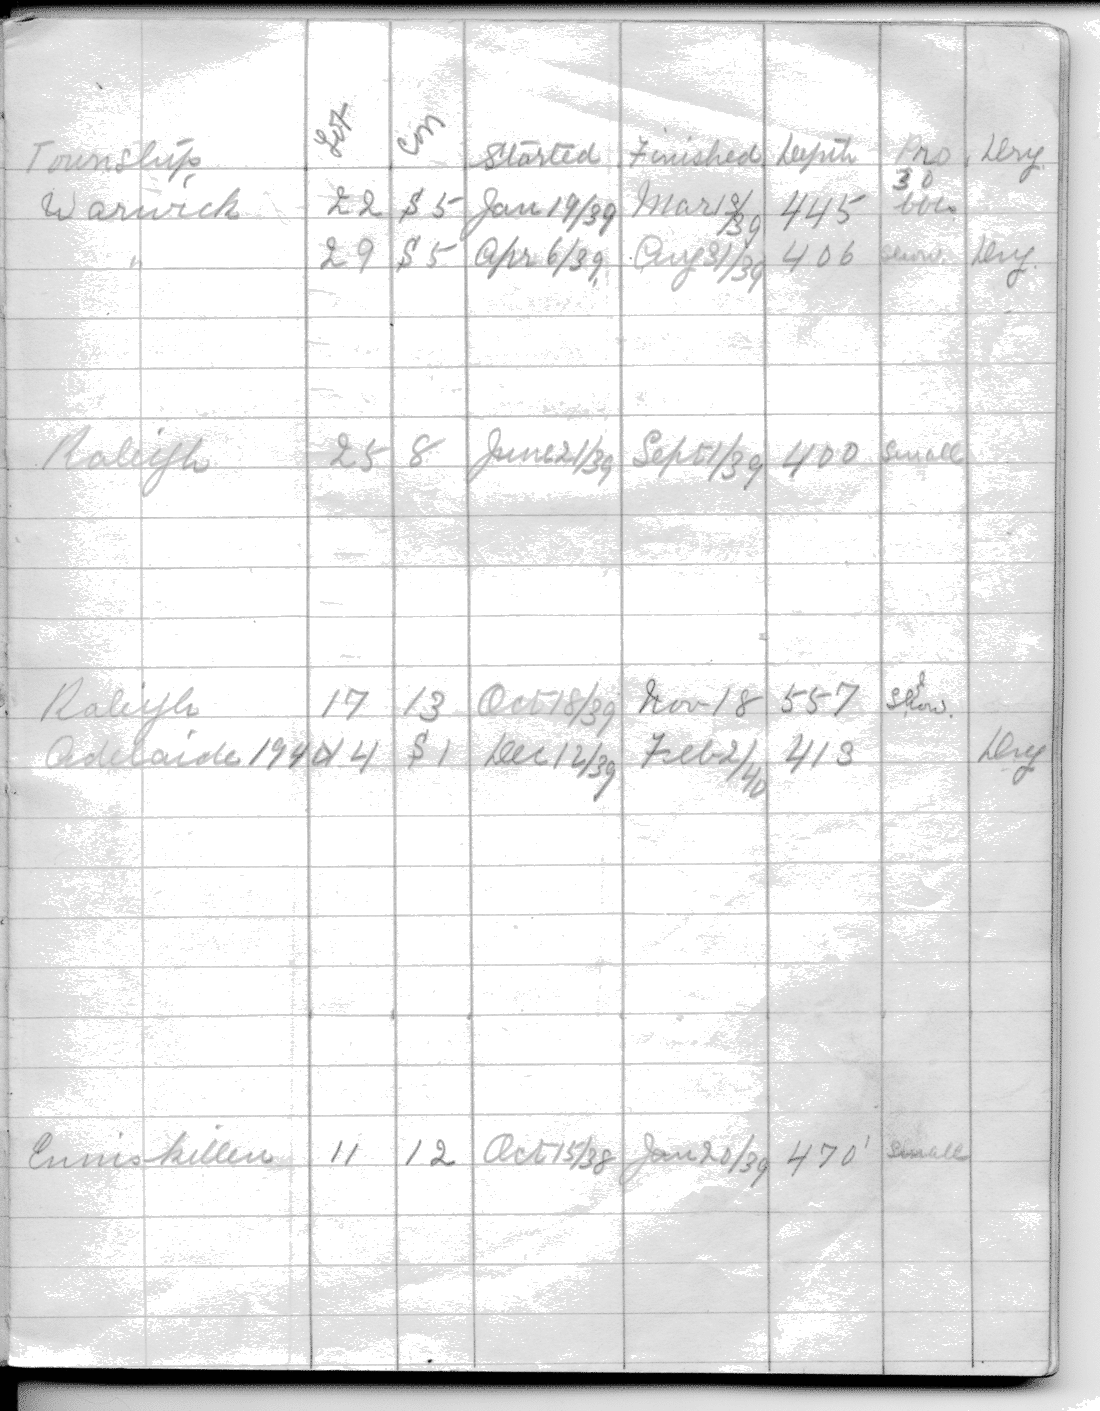 Township Lot Con Started Finished Depth Pro Dry
Warwick 22 $5 Jan 19/39 Mar 18/39 445 30 bbls
" 29 $5 Apr 6/39 Aug 31/39 406 show. Dry.
Raleigh 25 8 June 21/39 Sept 1/39 400 Small
Raleigh 17 13 Oct 18/39 Nov 18 557 Show.
Adelaide 1940 14 $1 Dec 12/39 Feb 2/40 413 Dry
Enniskillen 11 12 Oct 15/38 Jan 20/39 470' Small